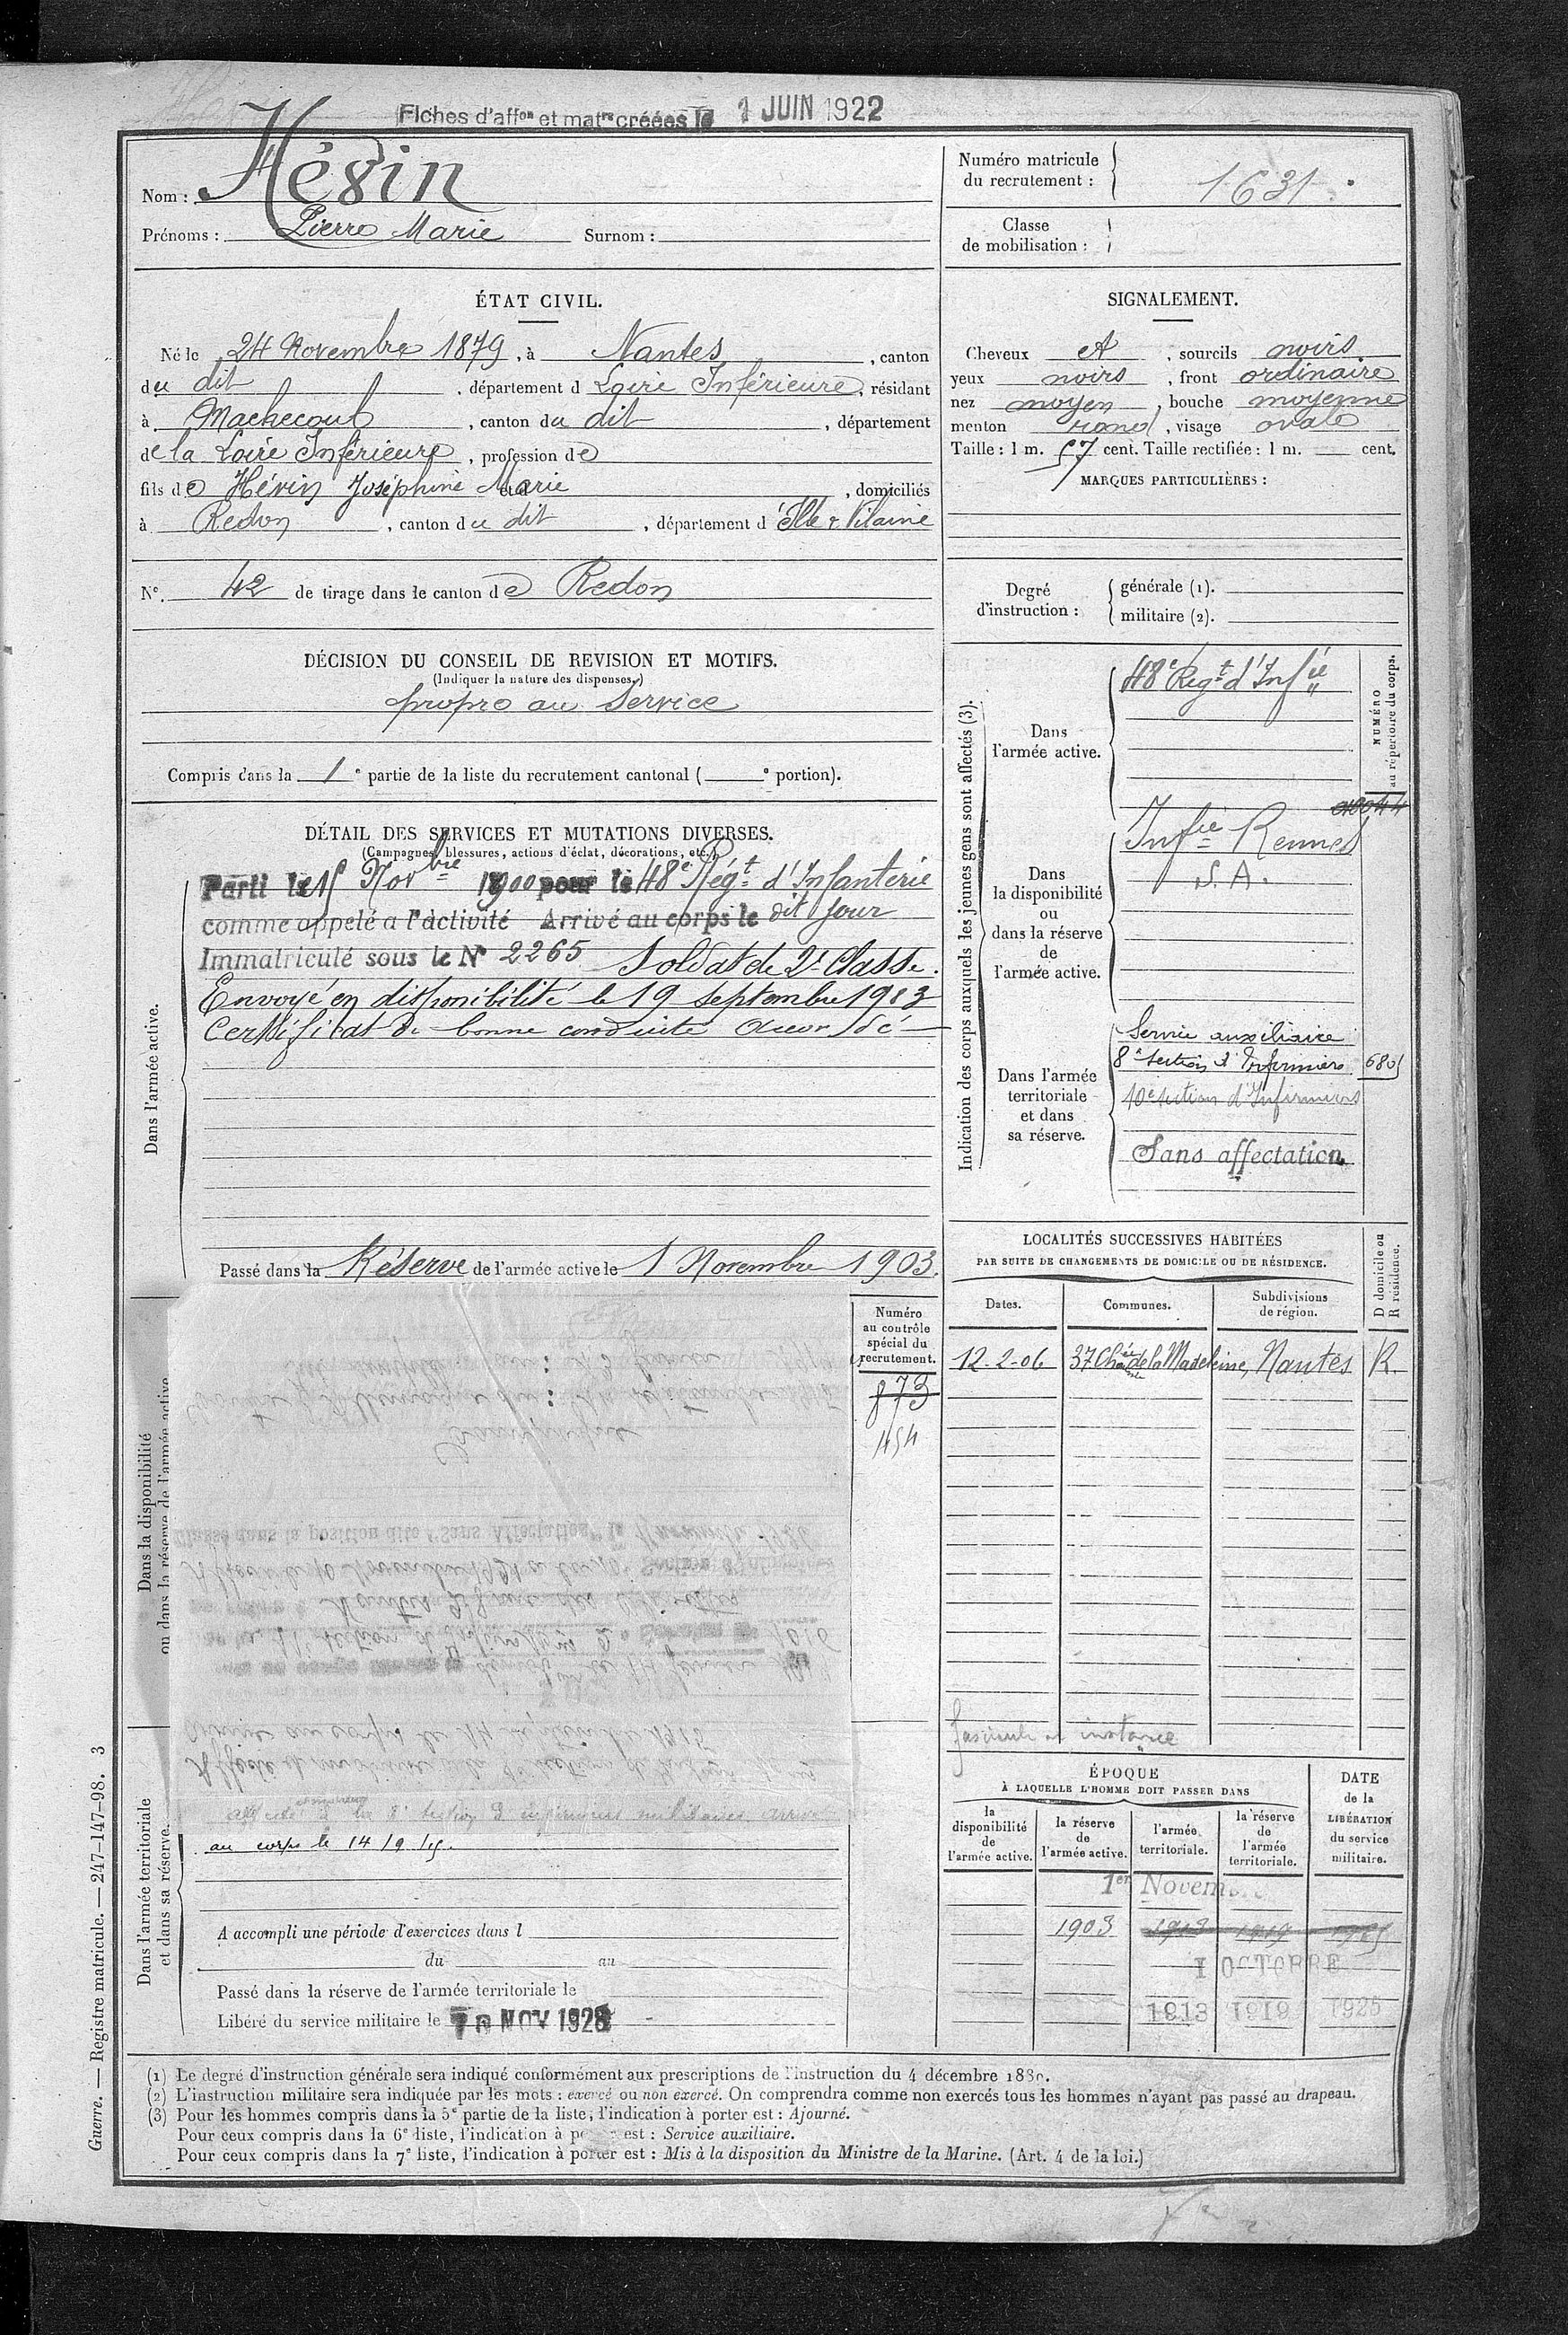 Fiches d'affon et matres créées le 1 JUIN 1922
Nom : Hévin
Prénoms : Pierre Marie Surnom :
Numéro matricule du recrutement : 1631.
Classe de mobilisation :
ÉTAT CIVIL.
Né le 24 Novembre 1879, à Nantes, canton
du dit, département d Loire Inférieure, résidant
à Machecoul, canton du dit, département
de la Loire Inférieure, profession de
fils de Hévin Joséphine Marie et de, domiciliés
à Redon, canton du dit, département d'Ille & Vilaine
N° 42 de tirage dans le canton de Redon
SIGNALEMENT.
Cheveux et, sourcils noirs
yeux noirs, front ordinaire
nez moyen, bouche moyenne
menton rond, visage ovale
Taille : 1 m. 57 cent. Taille rectifiée : 1 m. cent.
MARQUES PARTICULIÈRES :
Degré d'instruction : générale (1).
militaire (2).
DÉCISION DU CONSEIL DE REVISION ET MOTIFS.
(Indiquer la nature des dispenses.)
propre au service
Compris dans la 1e partie de la liste du recrutement cantonal ( e portion).
DÉTAIL DES SERVICES ET MUTATIONS DIVERSES.
(Campagnes, blessures, actions d'éclat, décorations, etc.)
Dans l'armée active.
Parti le 15 Novbre 1900 pour le 48e Régt d'Infanterie
comme appelé a l'activité Arrivé au corps le dit jour
Immatriculé sous le N° 2265 Soldat de 2e Classe.
Envoyé en disponibilité le 19 septembre 1903
Certificat de bonne conduite accordé
Passé dans la Réserve de l'armée active le 1 Novembre 1903.
Indication des corps auxquels les jeunes gens sont affectés (3).
NUMÉRO au répertoire du corps.
Dans l'armée active.
48e Régt d'Infie
Dans la disponibilité ou dans la réserve de l'armée active.
Infie Rennes
S. A.
Dans l'armée territoriale et dans sa réserve.
Service auxiliaire
8e section d'Infirmiers 6805
10e section d'Infirmiers
Sans affectation
LOCALITÉS SUCCESSIVES HABITÉES
PAR SUITE DE CHANGEMENTS DE DOMICILE OU DE RÉSIDENCE.
D domicile ou R résidence.
Dates. Communes. Subdivisions de région.
12-2-06 37 Chée de la Madeleine, Nantes R.
fascicule en instance
Dans la disponibilité ou dans la réserve de l'armée active
Numéro au contrôle spécial du recrutement.
873
454
Dans l'armée territoriale et dans sa réserve.
affecté à la 8e section d'infirmiers militaires arrivé
au corps le 14/9/15.
A accompli une période d'exercices dans l
du au
Passé dans la réserve de l'armée territoriale le
Libéré du service militaire le 10 NOV 1928
ÉPOQUE
À LAQUELLE L'HOMME DOIT PASSER DANS
la disponibilité de l'armée active.
la réserve de l'armée active.
l'armée territoriale.
la réserve de l'armée territoriale.
DATE de la LIBÉRATION du service militaire.
1er Novembre
1903 1913 1919 1925
1 OCTOBRE
1913 1919 1925
(1) Le degré d'instruction générale sera indiqué conformément aux prescriptions de l'Instruction du 4 décembre 1889.
(2) L'instruction militaire sera indiquée par les mots : exercé ou non exercé. On comprendra comme non exercés tous les hommes n'ayant pas passé au drapeau.
(3) Pour les hommes compris dans la 5e partie de la liste, l'indication à porter est : Ajourné.
Pour ceux compris dans la 6e liste, l'indication à porter est : Service auxiliaire.
Pour ceux compris dans la 7e liste, l'indication à porter est : Mis à la disposition du Ministre de la Marine. (Art. 4 de la loi.)
Guerre. — Registre matricule. — 247-147-98. 3